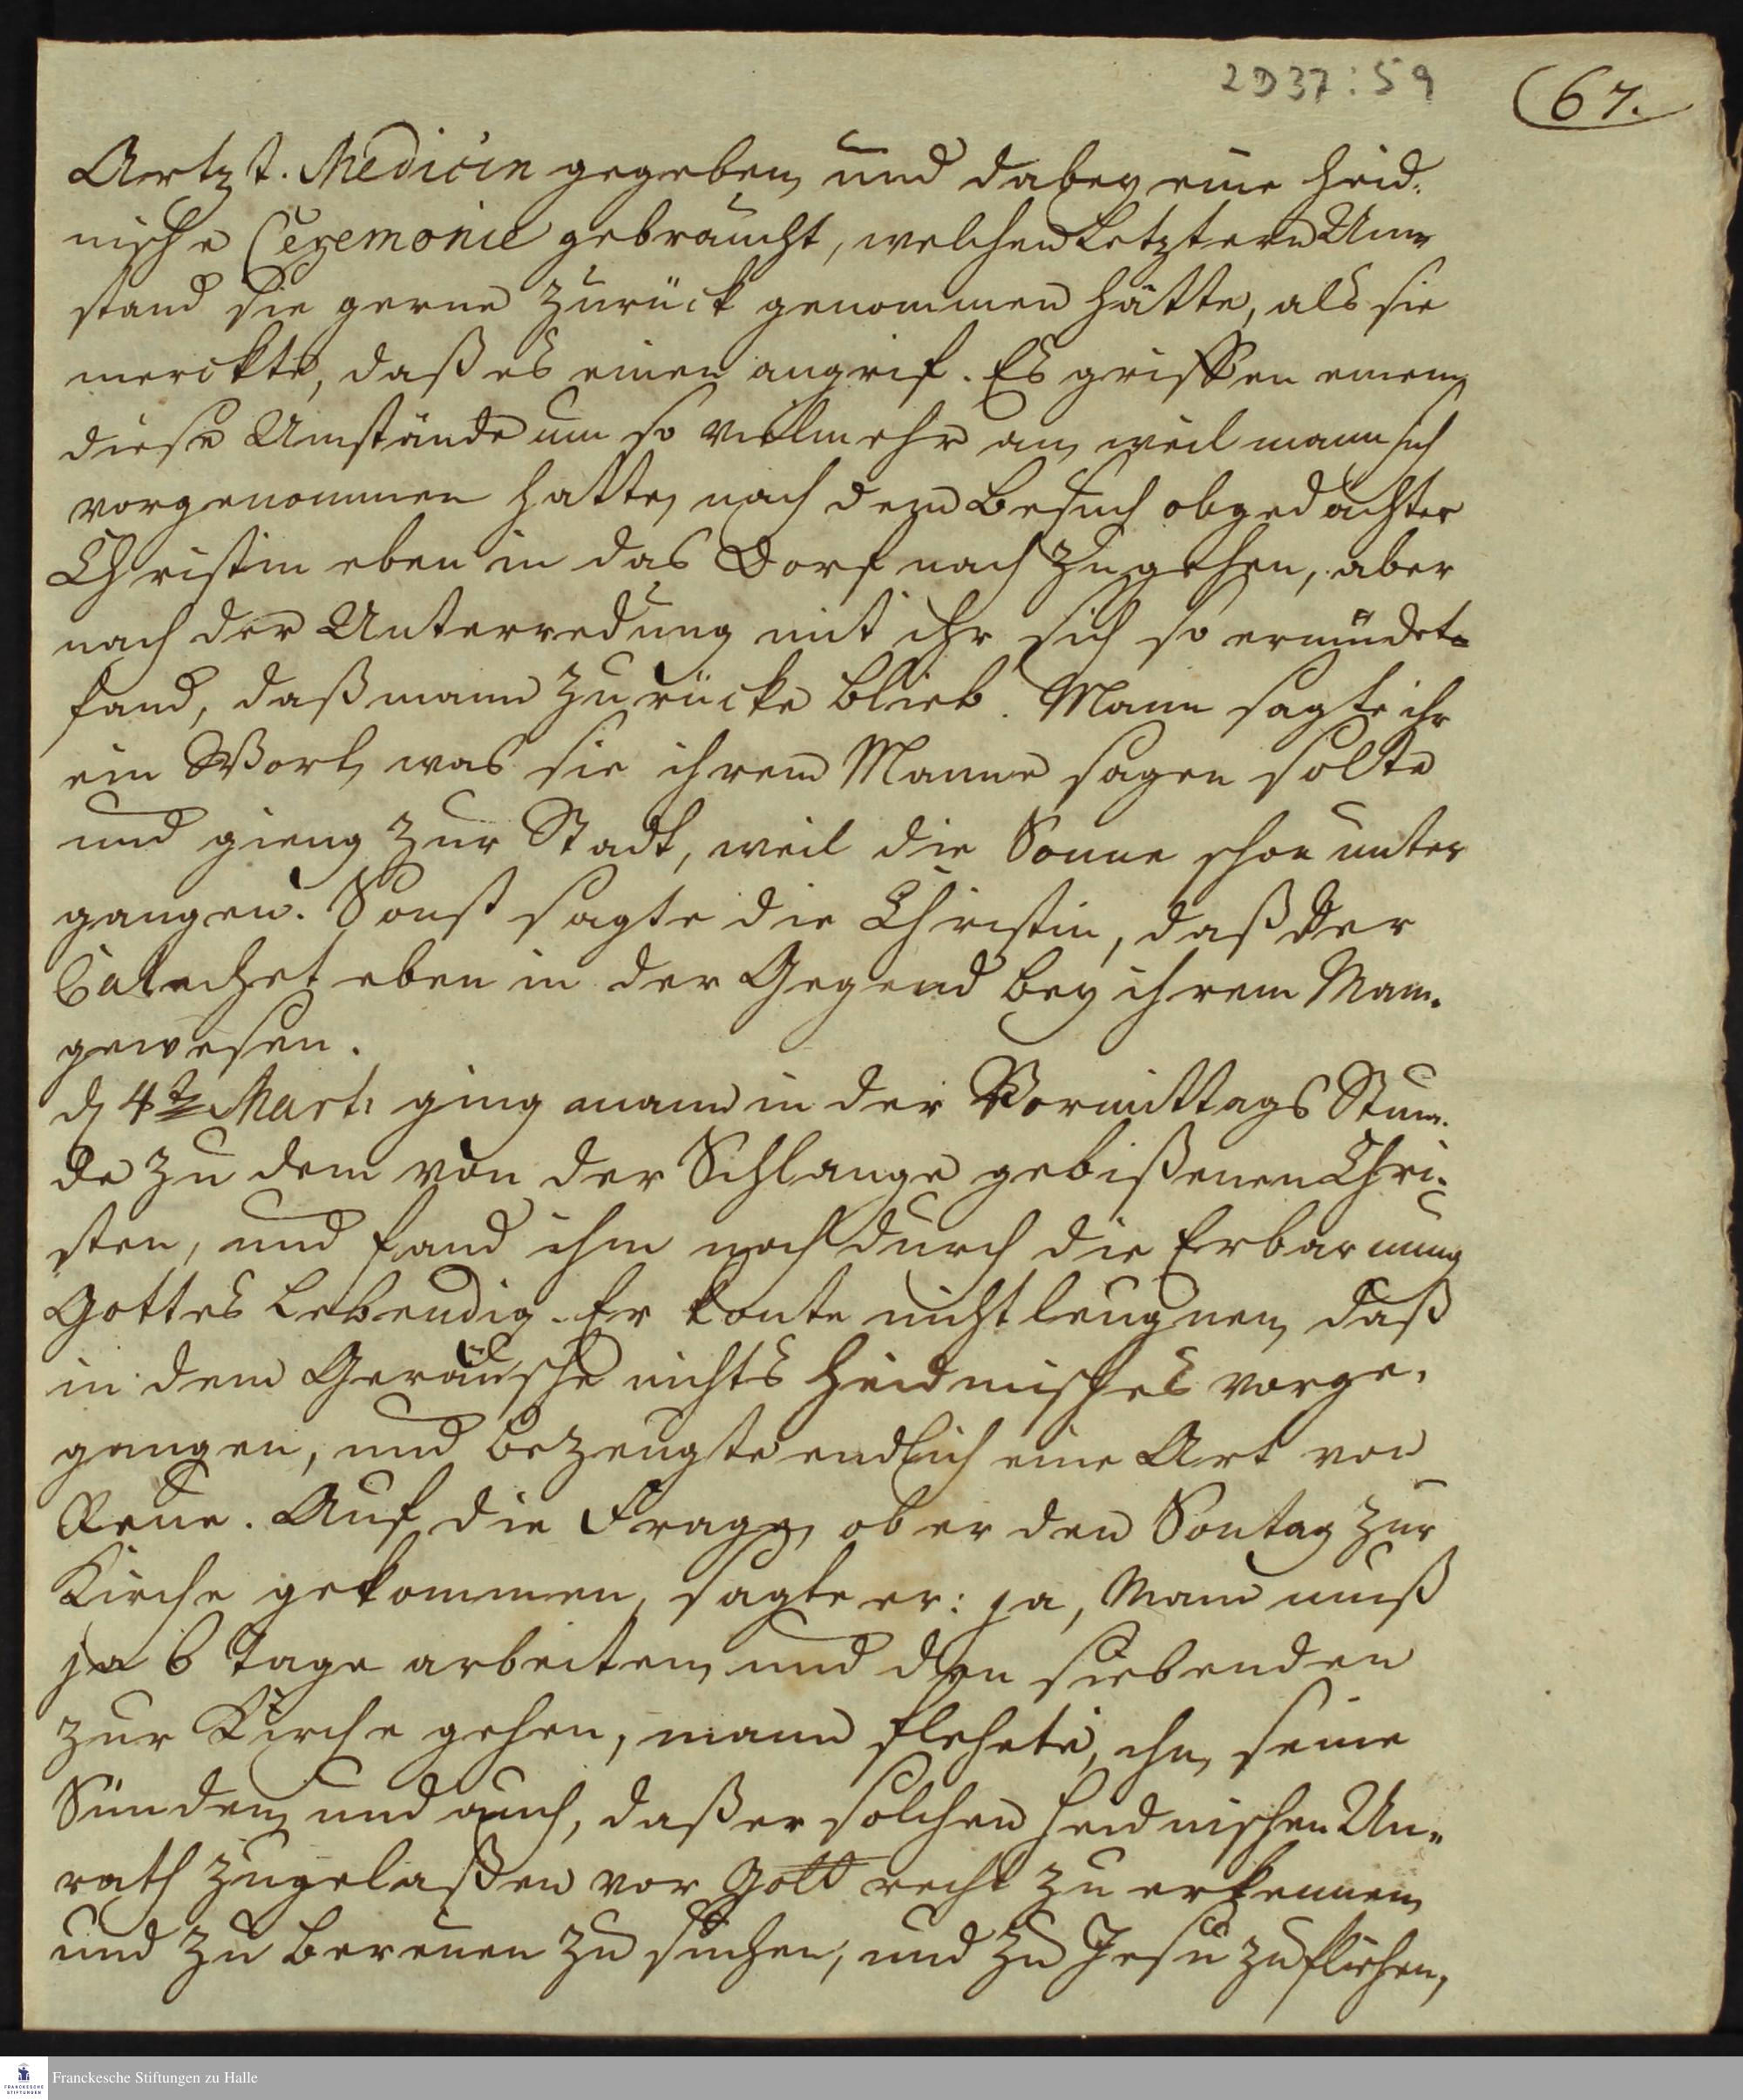 2D37:59
67.
Artzt. Medicin gegeben, und dabey eine heid-
nische Ceremonie gebraucht, welchen Letztern Um-
stand sie gerne zurück genommen hätte, als sie
merckte, daß es einen angrif. Es griffen einem
diese Umstände um so vielmehr an, weil mann sich
vorgenommen hatte, nach dem Besuch obgedachter
Christin eben in das Dorf nach zu gehen, aber
nach der Unterredung mit ihr sich so ermüdet
fand, daß mann zurücke blieb. Mann sagte ihr
ein Wort, was sie ihrem Manne sagen solte
und gieng zur Stadt, weil die Sonne schon unter
gangen. Sonst sagte die Christin, daß der
Catechet eben in der Gegend bey ihrem Mann
gewesen.
d 4t Mart: ging mann in der Vormittags Stun-
de zu dem von der Schlange gebißenen Chri-
sten, und fand ihm noch durch die Erbarmung
Gottes Lebendig. Er konte nicht leugnen, daß
in dem Geräusche nichts Heidnisches vorge-
gangen, und bezeugte endlich eine Art von
Reue. Auf die Frage, ob er den Sontag zur
Kirche gekommen, sagte er: ja, Mann muß
ja 6 Tage arbeiten, und den siebenden
zur Kirche gehen, mann flehete, ihn, seine
Sünden, und auch, daß er solchen heidnischen Un-
rath zugelaßen vor Gott recht zu erkennen,
und zu bereuen zu suchen, und zu Jesu zu fliehen,
Franckesche Stiftungen zu Halle